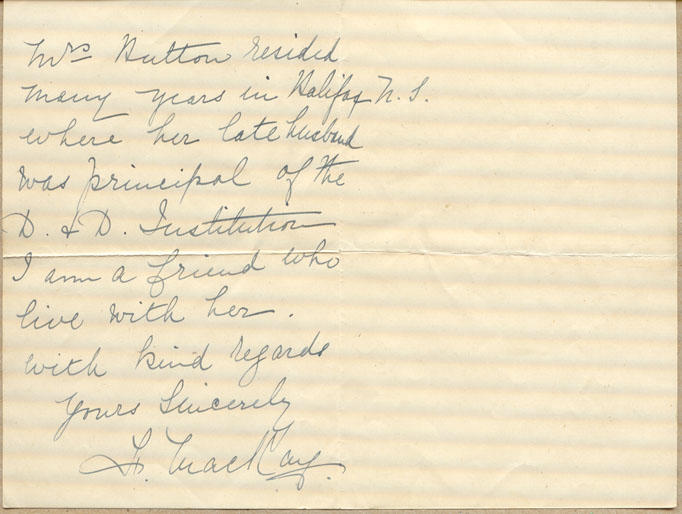 Mrs Hutton resided
many years in Halifax N. S.
where her late husband
was principal of the
D. & D. Institution
I am a friend who
live with her.
with kind regards
Yours Sincerely
MacKay.